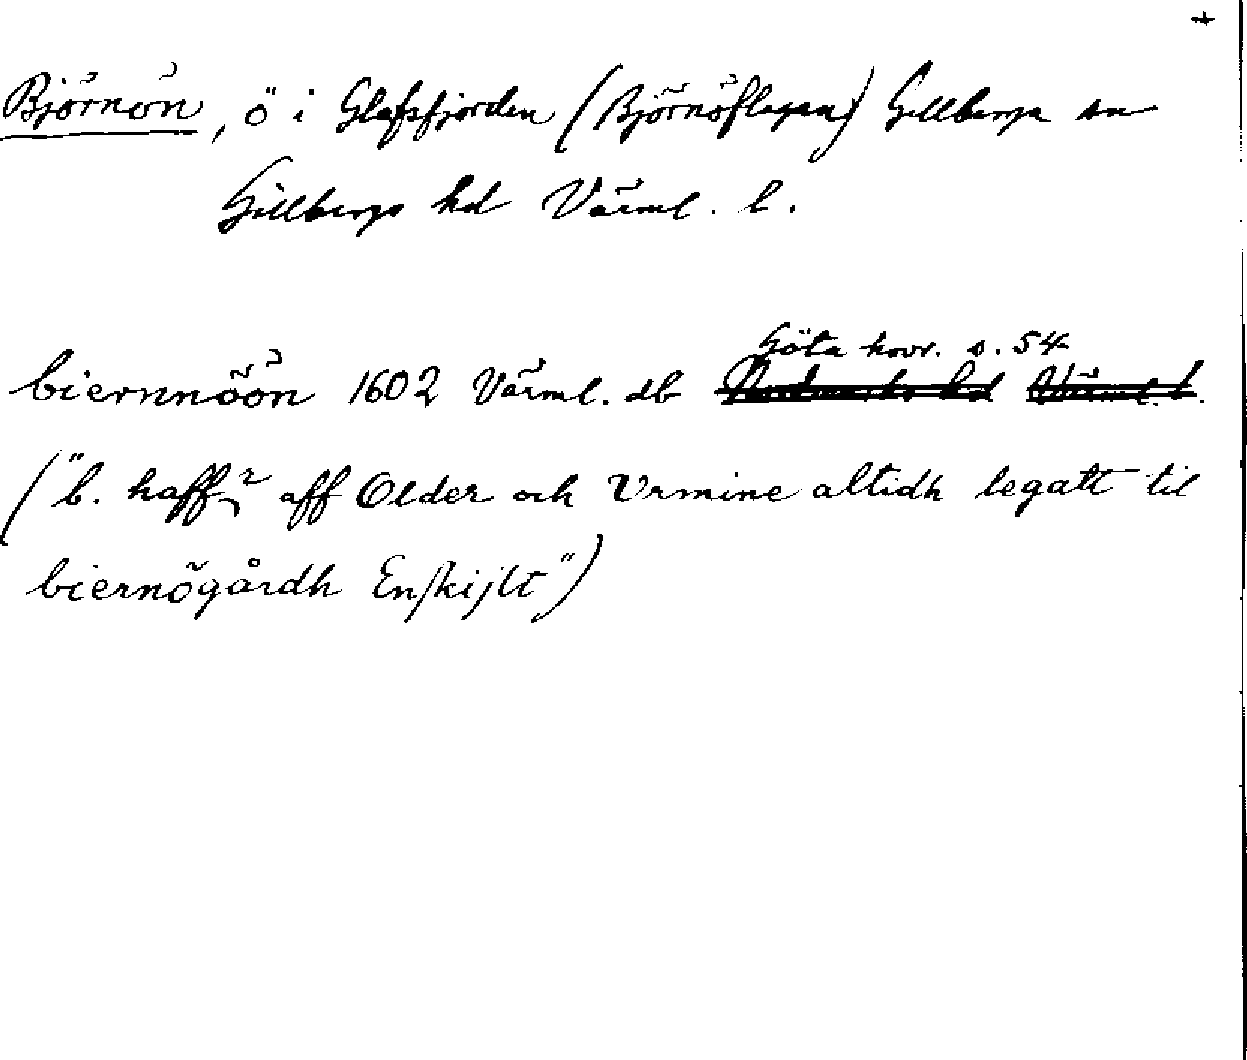 +
Björnön, ö i Glafsfjorden (Björnöflagan) Gillberga sn
Gillbergs hd Värml. l.
Göta hovr. s. 54
biernnöön 1602 Värml. db Nordmarks hd Värml. l.
("b. haffr aff Older och Vrmine altidh legatt til
biernögårdh Enskijlt")